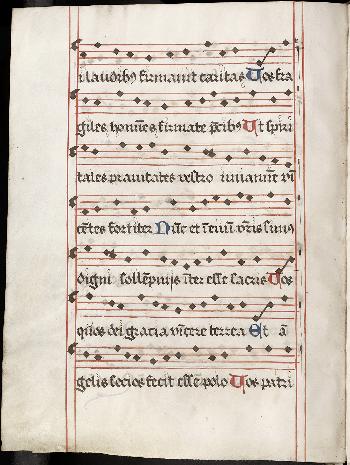 i laudibꝰ firmauit caritas Vos fra
giles homines firmate p̄cibꝰ Vt spiri
tales prauitates vestro iuuamine vī
cētes fortiter Nūc et ī euū vr̄is simus
digni sollēpnijs īter esse sacris Vos
quos dei gracia vīcere terrea Et ā
gelis socios fecit esse polo Vos patri